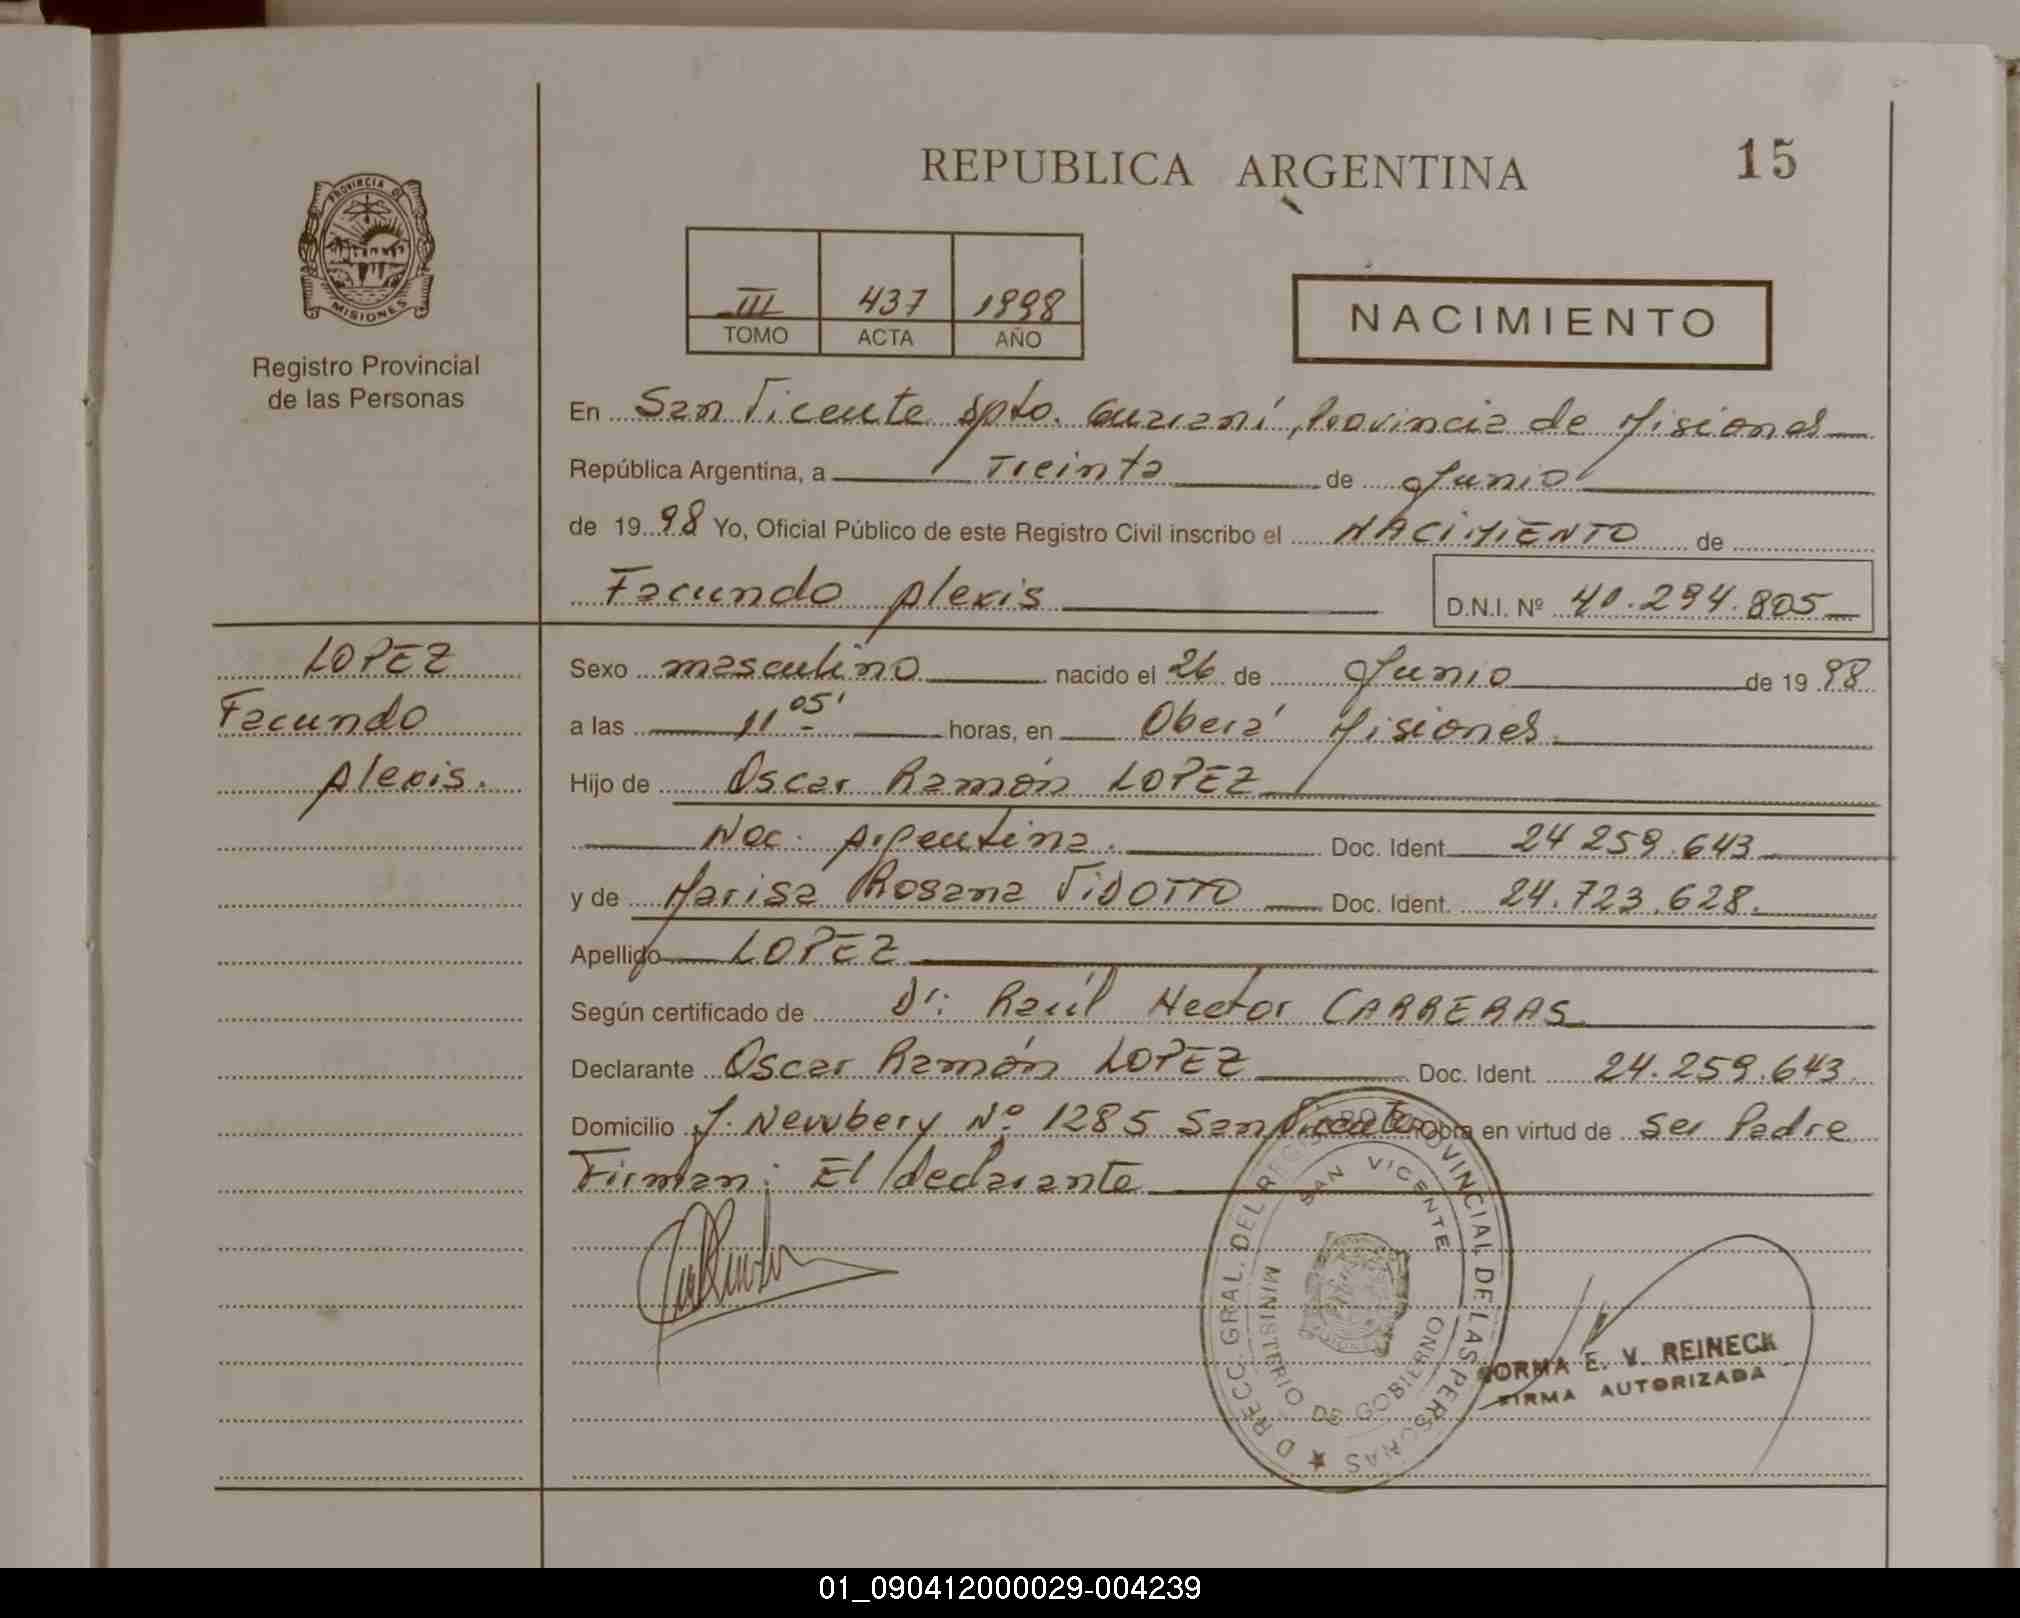 REPUBLICA ARGENTINA
15
PROVINCIA DE
MISIONES
Registro Provincial
de las Personas
III 437 1998
TOMO ACTA AÑO
NACIMIENTO
En San Vicente Dpto. Guaraní, Provincia de Misiones
República Argentina, a Treinta de Junio
de 19 98 Yo, Oficial Público de este Registro Civil inscribo el NACIMIENTO de
Facundo Alexis D.N.I. Nº 40.294.805
LOPEZ
Facundo
Alexis.
Sexo masculino nacido el 26 de Junio de 19 98
a las 11 05' horas, en Oberá Misiones.
Hijo de Oscar Ramón LOPEZ
Nac. Argentina. Doc. Ident. 24 259.643
y de Marisa Rosana VIDOTTO Doc. Ident. 24.723.628.
Apellido LOPEZ
Según certificado de Dr: Raúl Hector CARRERAS
Declarante Oscar Ramón LOPEZ Doc. Ident. 24.259.643
Domicilio J. Newbery Nº 1285 San Vicente Obra en virtud de Ser Padre
Firman: El declarante
DIRECC. GRAL. DEL REGISTRO PROVINCIAL DE LAS PERSONAS
SAN VICENTE
MINISTERIO DE GOBIERNO
NORMA E. V. REINECK
FIRMA AUTORIZADA
01_090412000029-004239